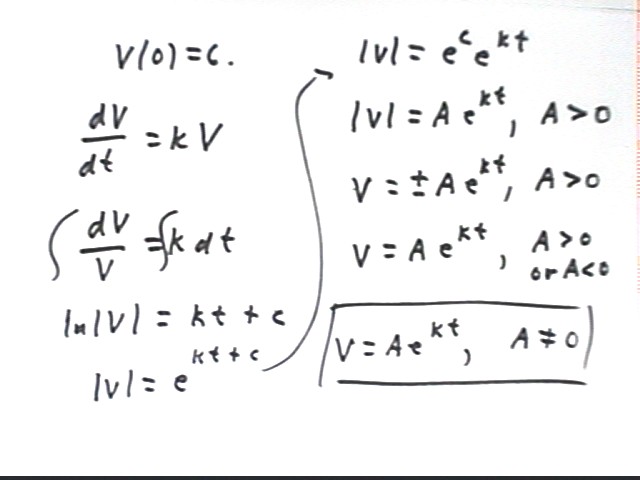 V(0) = 6.
dV/dt = kV
∫ dV/V = ∫ k dt
ln|V| = kt + c
|V| = e^(kt + c)
|V| = e^c e^(kt)
|V| = A e^(kt), A > 0
V = ± A e^(kt), A > 0
V = A e^(kt), A > 0
or A < 0
V = A e^(kt), A ≠ 0